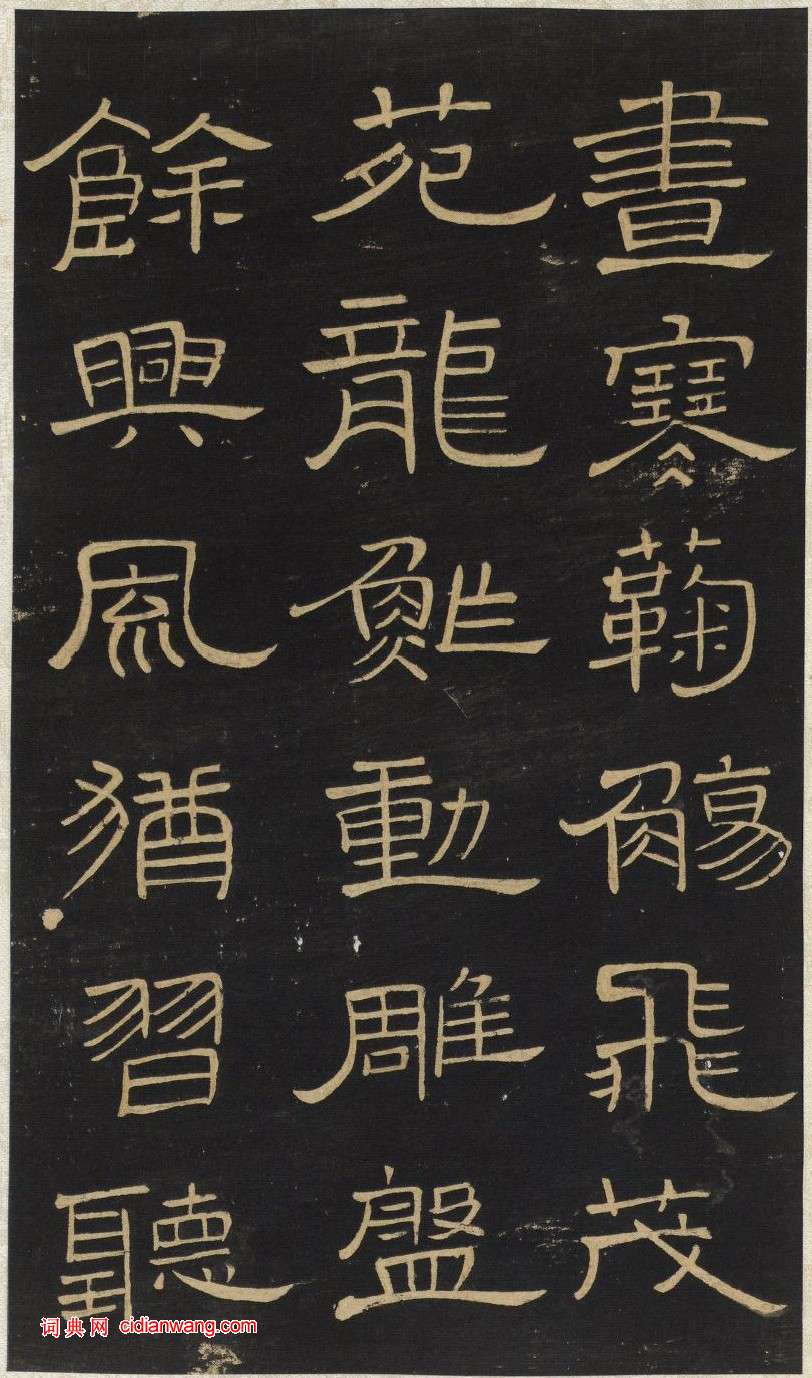 晝寒鞠觴飛茂
苑龍鮓動雕盤
餘興風猶習聽
词典网 cidianwang.com